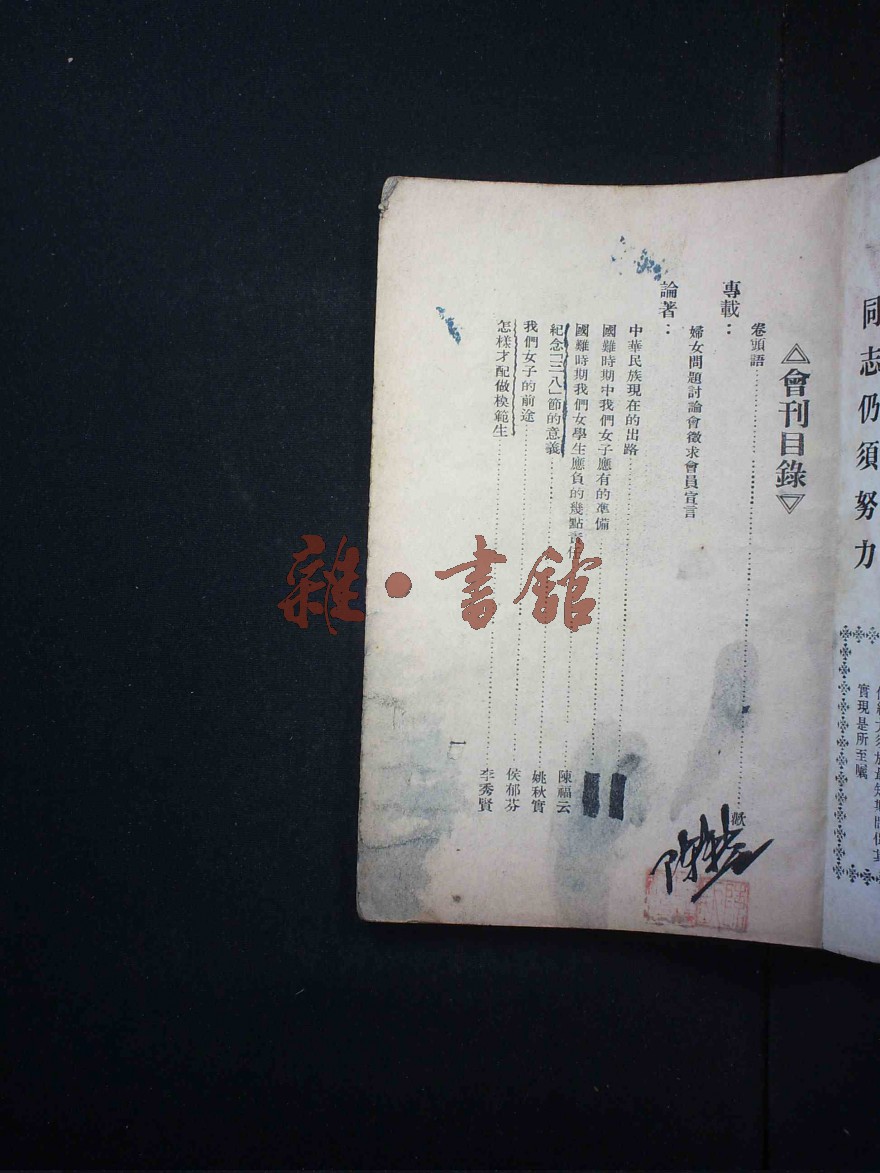 同志仍須努力
實現是所至囑
會刊目錄
卷頭語
專載：
婦女問題討論會徵求會員宣言
論著：
中華民族現在的出路
國難時期中我們女子應有的準備
國難時期我們女學生應負的幾點責任 陳福云
紀念「三八」節的意義 姚秋實
我們女子的前途 侯郁芬
怎樣才配做模範生 李秀賢
一
雜·書館